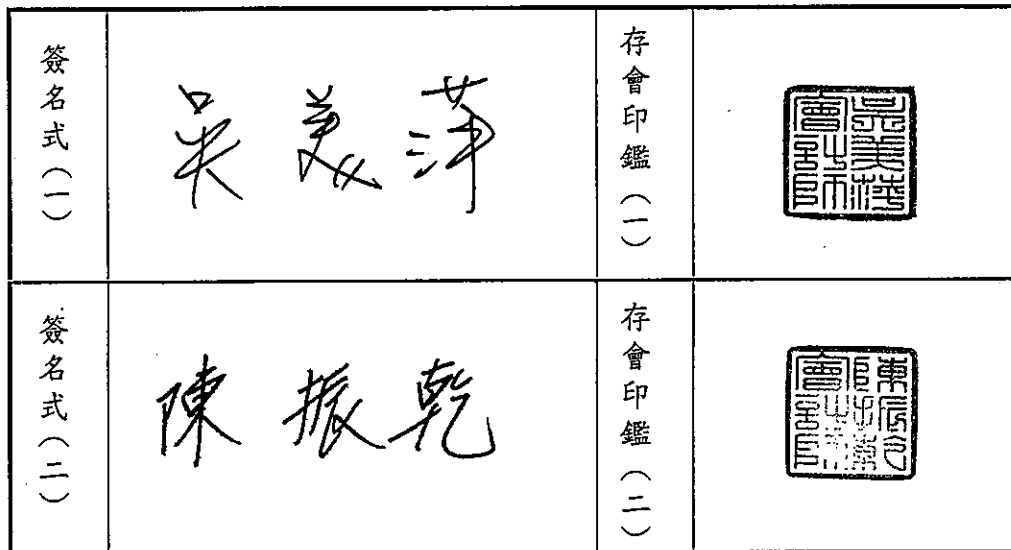 簽名式(一)
吳美萍
存會印鑑(一)
吳美萍會計師
簽名式(二)
陳振乾
存會印鑑(二)
陳振乾會計師